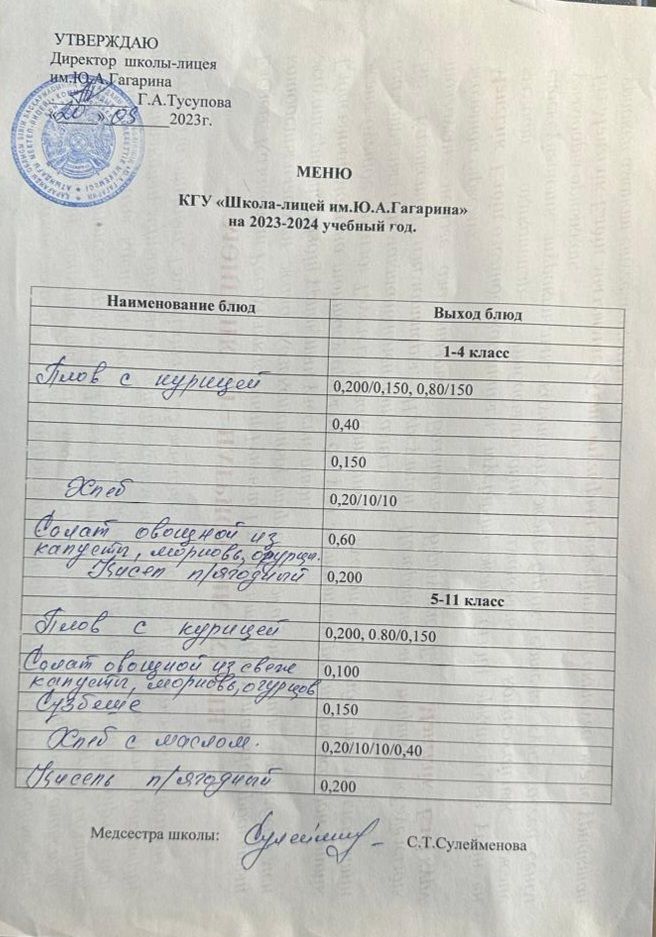 УТВЕРЖДАЮ
Директор школы-лицея
им.Ю.А.Гагарина
Г.А.Тусупова
«20» 09 2023г.
МЕНЮ
КГУ «Школа-лицей им.Ю.А.Гагарина»
на 2023-2024 учебный год.
Наименование блюд Выход блюд
1-4 класс
Плов с курицей 0,200/0,150, 0,80/150
0,40
0,150
Хлеб 0,20/10/10
Солат овощной из 0,60
капусты, морковь, огурци.
Кисел п/ягодный 0,200
5-11 класс
Плов с курицей 0,200, 0.80/0,150
Солат овощной из свеже 0,100
капусты, морковь, огурцов
Сузбеше 0,150
Хлеб с маслом. 0,20/10/10/0,40
Кисель п/ягодный 0,200
Медсестра школы: С.Т.Сулейменова